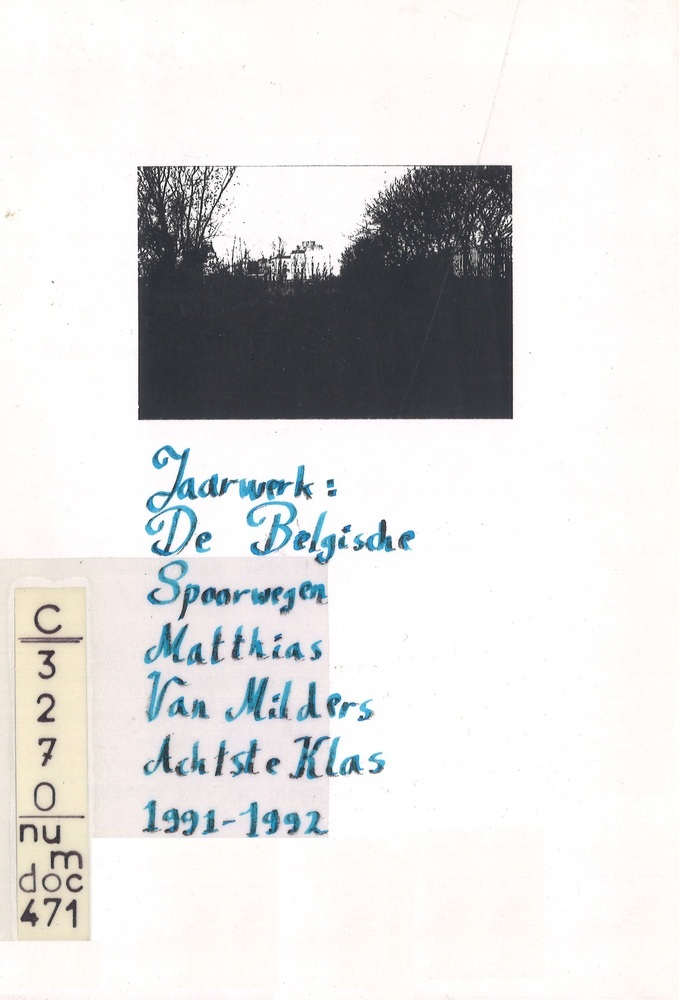 Jaarwerk:
De Belgische
Spoorwegen
Matthias
Van Milders
Achtste Klas
1991-1992
C
3
2
7
0
num
doc
471